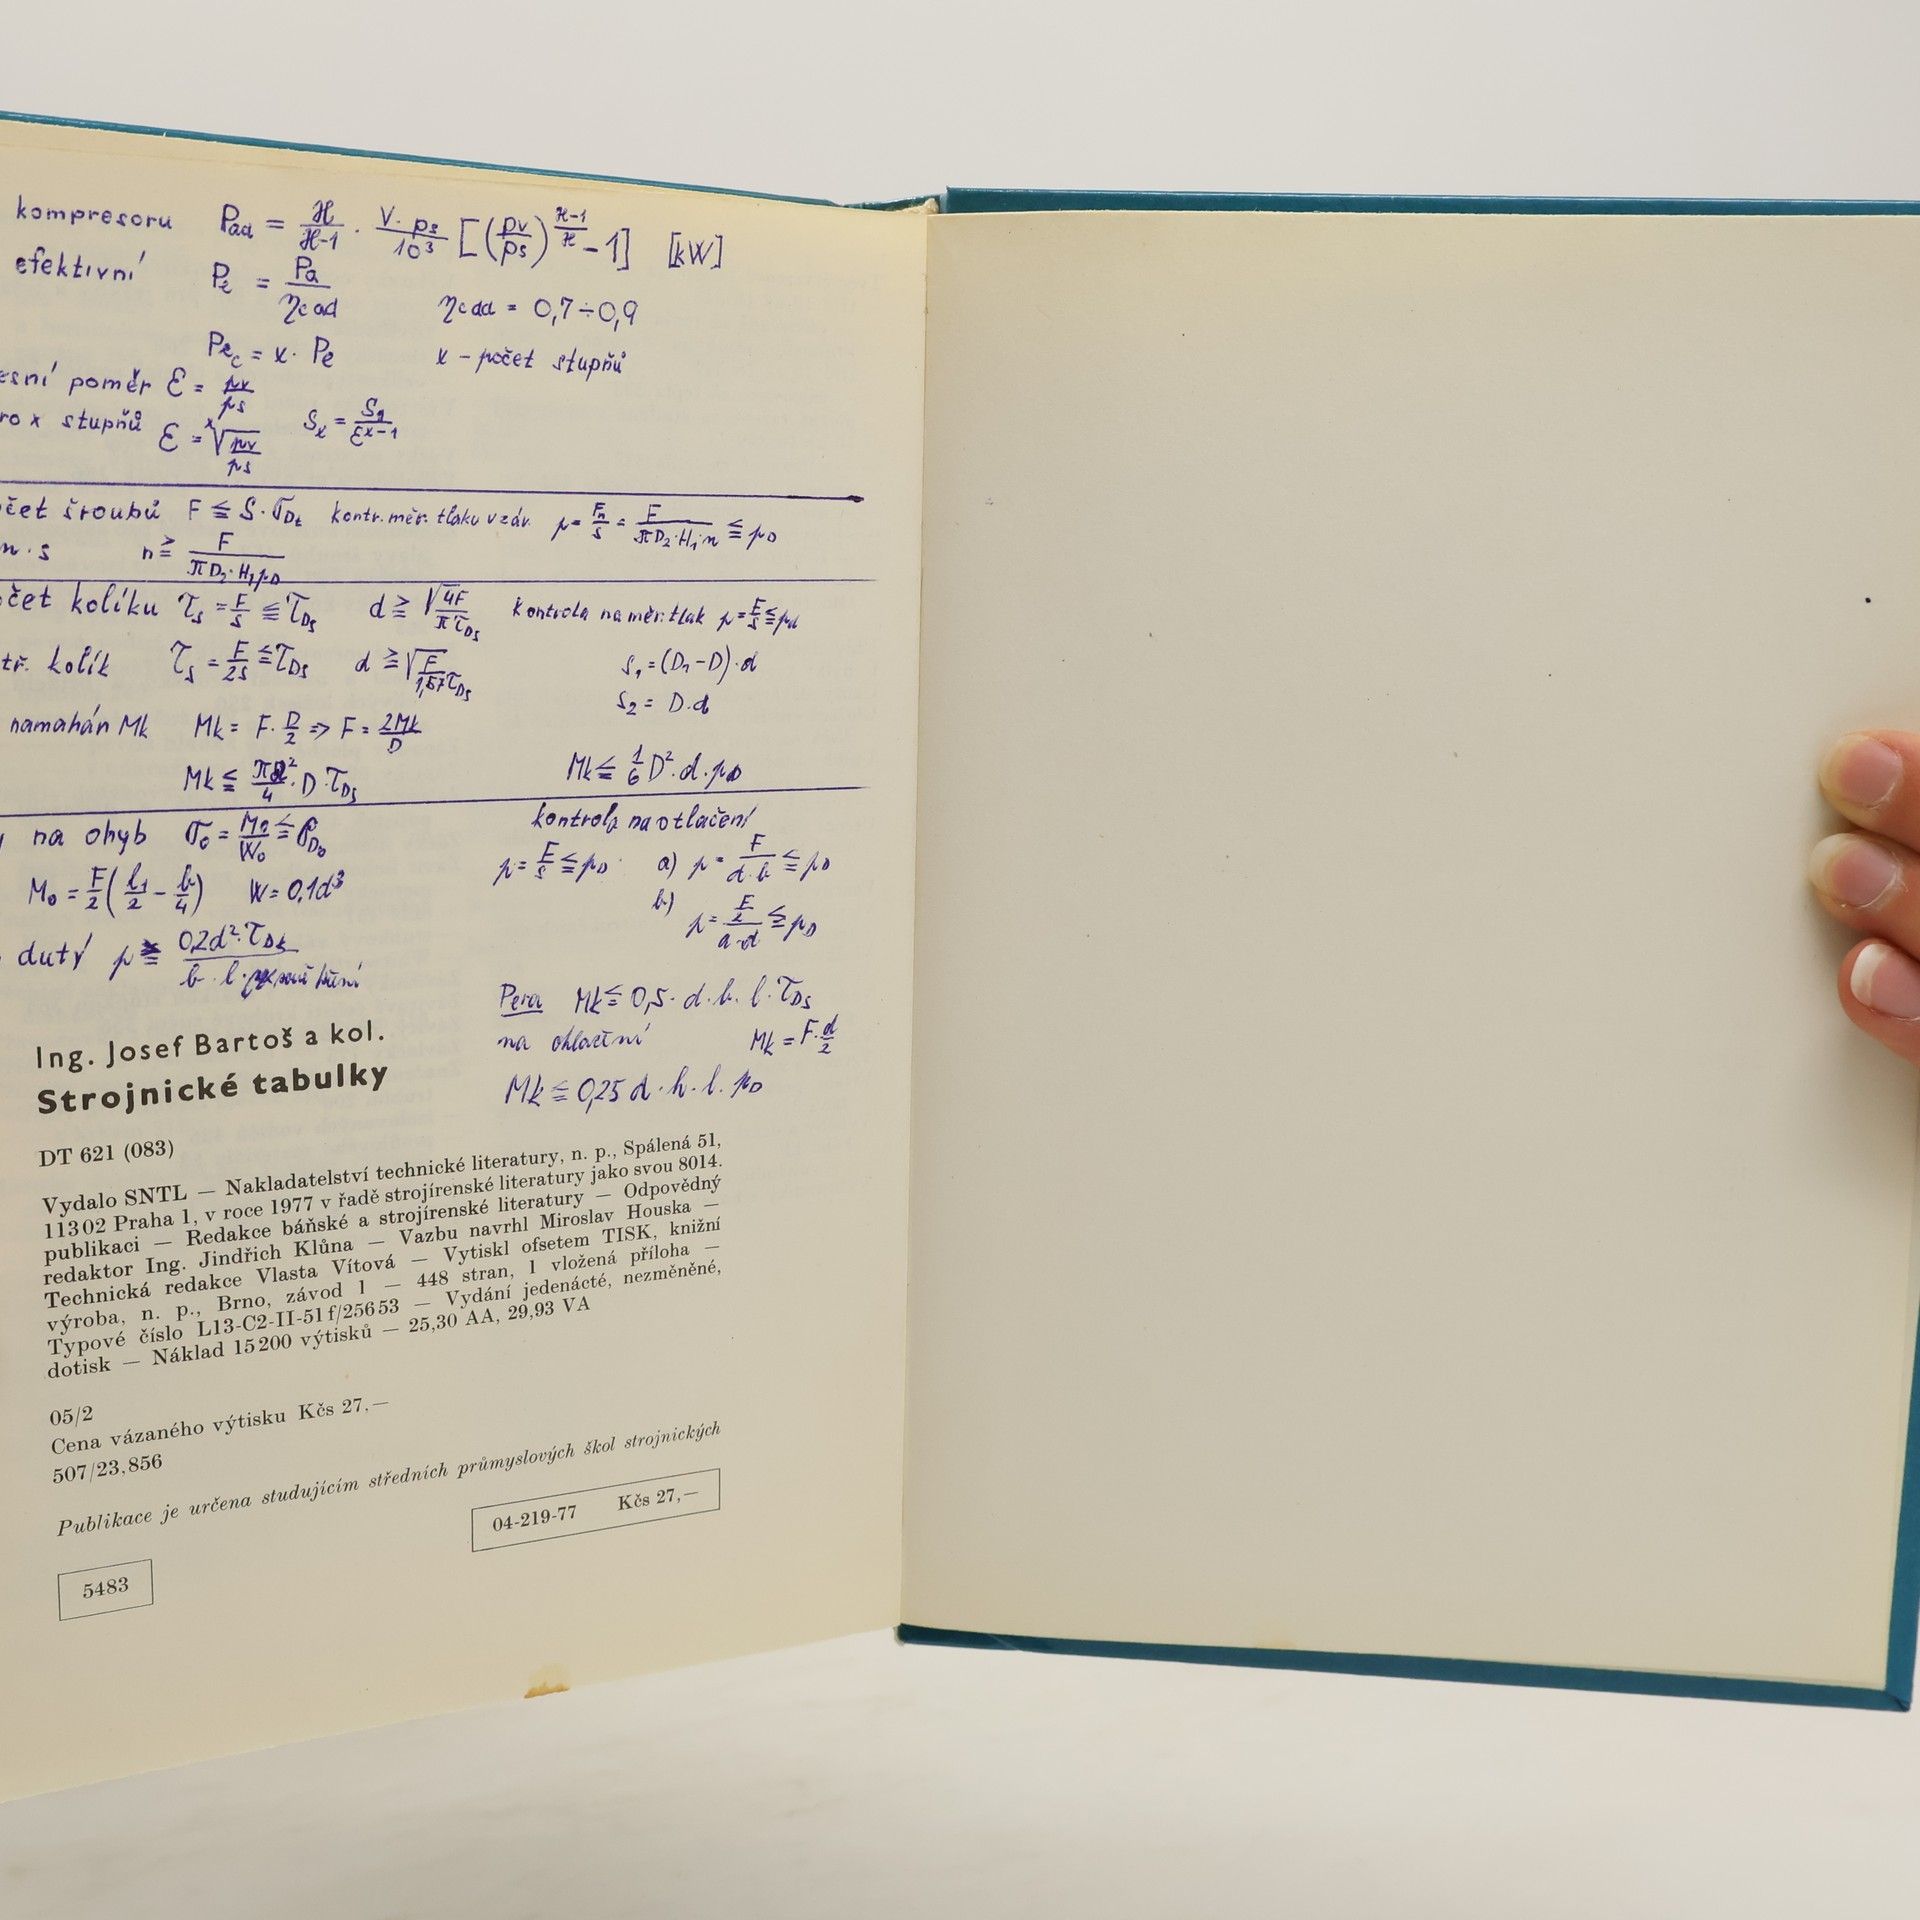 kompresoru Pad = ℋ/(ℋ-1) · (V · ps)/10³ [(pv/ps)^((ℋ-1)/ℋ) - 1] [kW]
efektivní Pe = Pa/ηcad ηcad = 0,7÷0,9
Pec = x · Pe x - počet stupňů
esní poměr ε = pv/ps
ro x stupňů ε = ˣ√(pv/ps) Sx = S1/ε^(x-1)
čet šroubů F ≦ S · σDt kontr. měr. tlaku v záv. p = Fn/S = F/(πD2 · H1 · n) ≦ pD
n · s n ≧ F/(πD2 · H1 pD)
čet kolíku τs = F/S ≦ τDs d ≧ √(4F/πτDs) kontrola na měr. tlak p = F/S ≦ pd
tř. kolík τs = F/2S ≦ τDs d ≧ √(F/1,57τDs) S1 = (D1 - D) · d
S2 = D · d
namahán Mk Mk = F · D/2 => F = 2Mk/D
Mk ≦ πd²/4 · D · τDs Mk ≦ 1/6 D² · d · pD
na ohyb σo = Mo/Wo ≦ σDo kontrola na otlačení
p = F/S ≦ pD a) p = F/(d · b) ≦ pD
Mo = F/2 (l1/2 - b/4) W = 0,1d³ b) p = (F/2)/(a · d) ≦ pD
dutý p ≧ 0,2d² · τDk/(b · l
Pera Mk ≦ 0,5 · d · b · l · τDs
na otlačení Mk = F · d/2
Mk ≦ 0,25 d · h · l · pD
Ing. Josef Bartoš a kol.
Strojnické tabulky
DT 621 (083)
Vydalo SNTL — Nakladatelství technické literatury, n. p., Spálená 51,
11302 Praha 1, v roce 1977 v řadě strojírenské literatury jako svou 8014.
publikaci — Redakce báňské a strojírenské literatury — Odpovědný
redaktor Ing. Jindřich Klůna — Vazbu navrhl Miroslav Houska —
Technická redakce Vlasta Vítová — Vytiskl ofsetem TISK, knižní
výroba, n. p., Brno, závod 1 — 448 stran, 1 vložená příloha —
Typové číslo L13-C2-II-51f/25653 — Vydání jedenácté, nezměněné,
dotisk — Náklad 15200 výtisků — 25,30 AA, 29,93 VA
05/2
Cena vázaného výtisku Kčs 27,—
507/23,856
Publikace je určena studujícím středních průmyslových škol strojnických
04-219-77 Kčs 27,—
5483